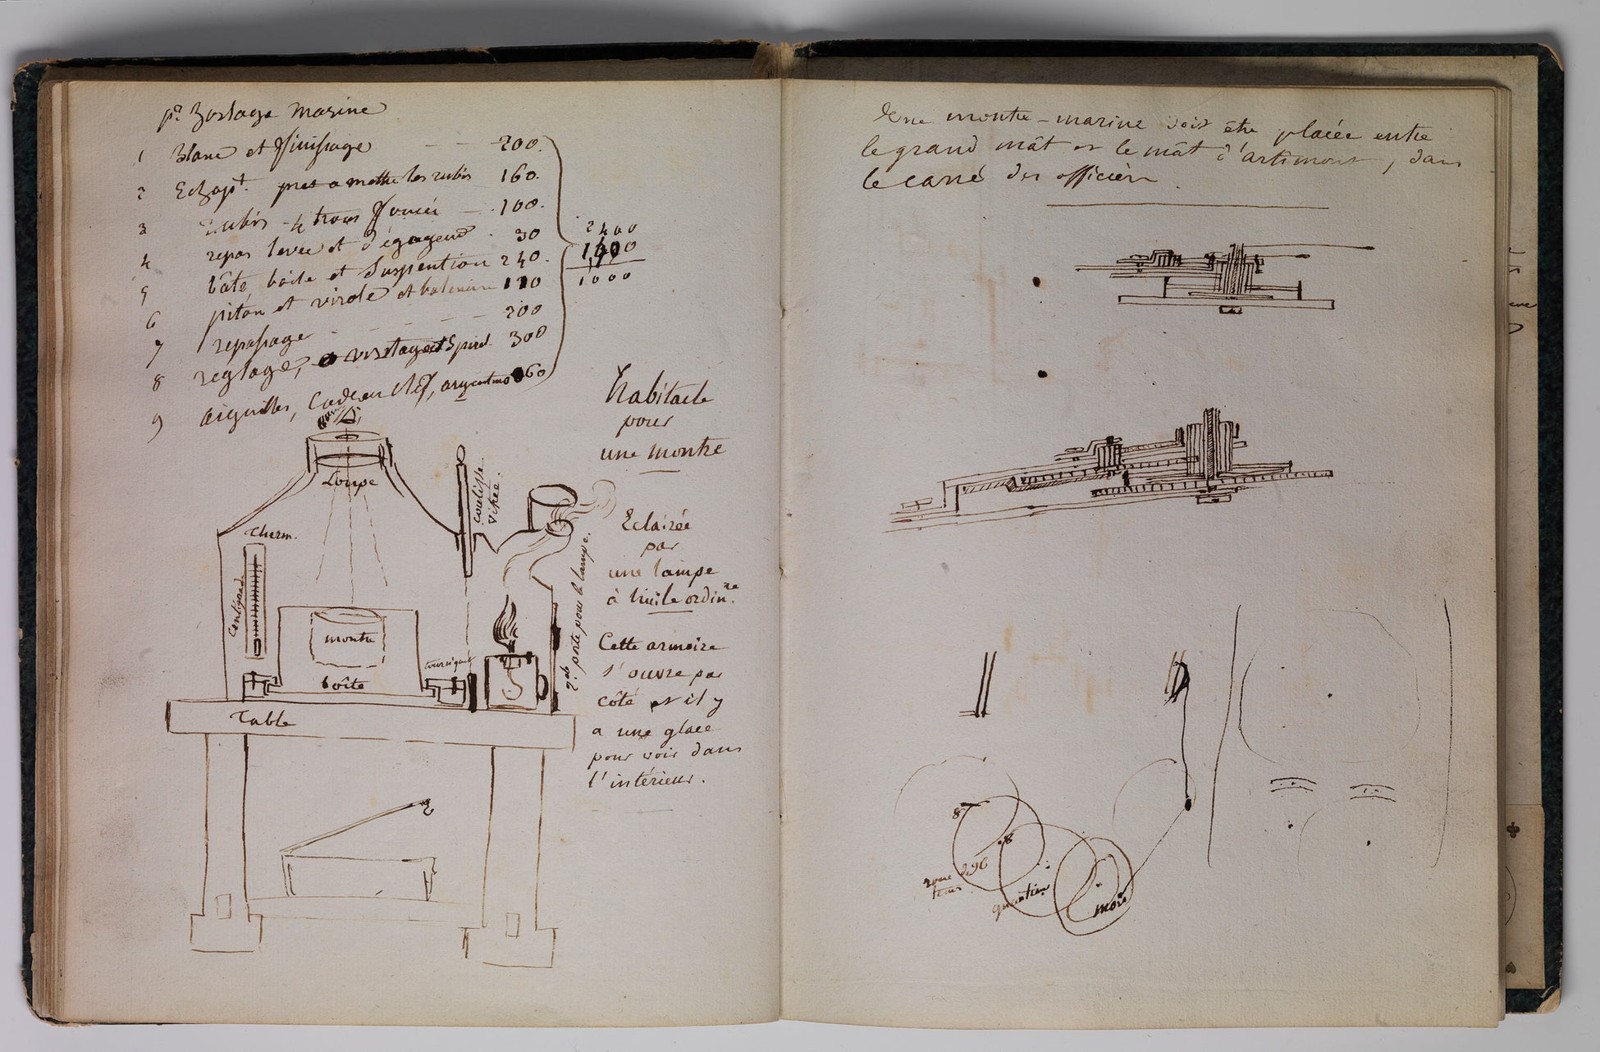 pr horloge marine
1 Blanc et finissage - - 200.
2 Echapt. pret a mettre les rubis 160.
3 Rubis 4 trous foncés - 100.
4 repos levée et dégagement . 30
5 bâte boite et suspention 240.
6 piton et virole et balancier
7 repassage - - - - - 200
8 reglage, 300
9 aiguilles, cadran clef, 60
2400
1400
1000
habitacle
pour
une montre
Loupe
Therm.
centigrade
coulisse
vitrée.
Eclairée
par
une lampe
à huile ordinre.
porte pour la lampe.
montre
boîte
Table
Cette armoire
s'ouvre par
côté et il y
a une glace
pour voir dans
l'intérieur.
Une montre-marine doit être placée entre
le grand mât et le mât d'artimont, dans
le carré des officiers.
8
8
roue de 96
quantième
mois